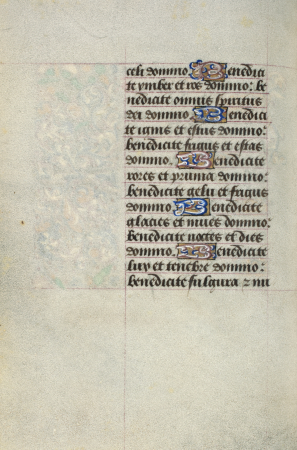 celi domino. Benedici
te ymber et ros domino: be
nedicite omnis spiritus
dei domino. Benedici
te ignis et estus domino:
benedicite frigus et estas
domino. Benedicite
rores et pruina domino:
benedicite gelu et frigus
domino. Benedicite
glacies et nives domino:
benedicite noctes et dies
domino. Benedicite
lux et tenebre domino:
benedicite fulgura et nu